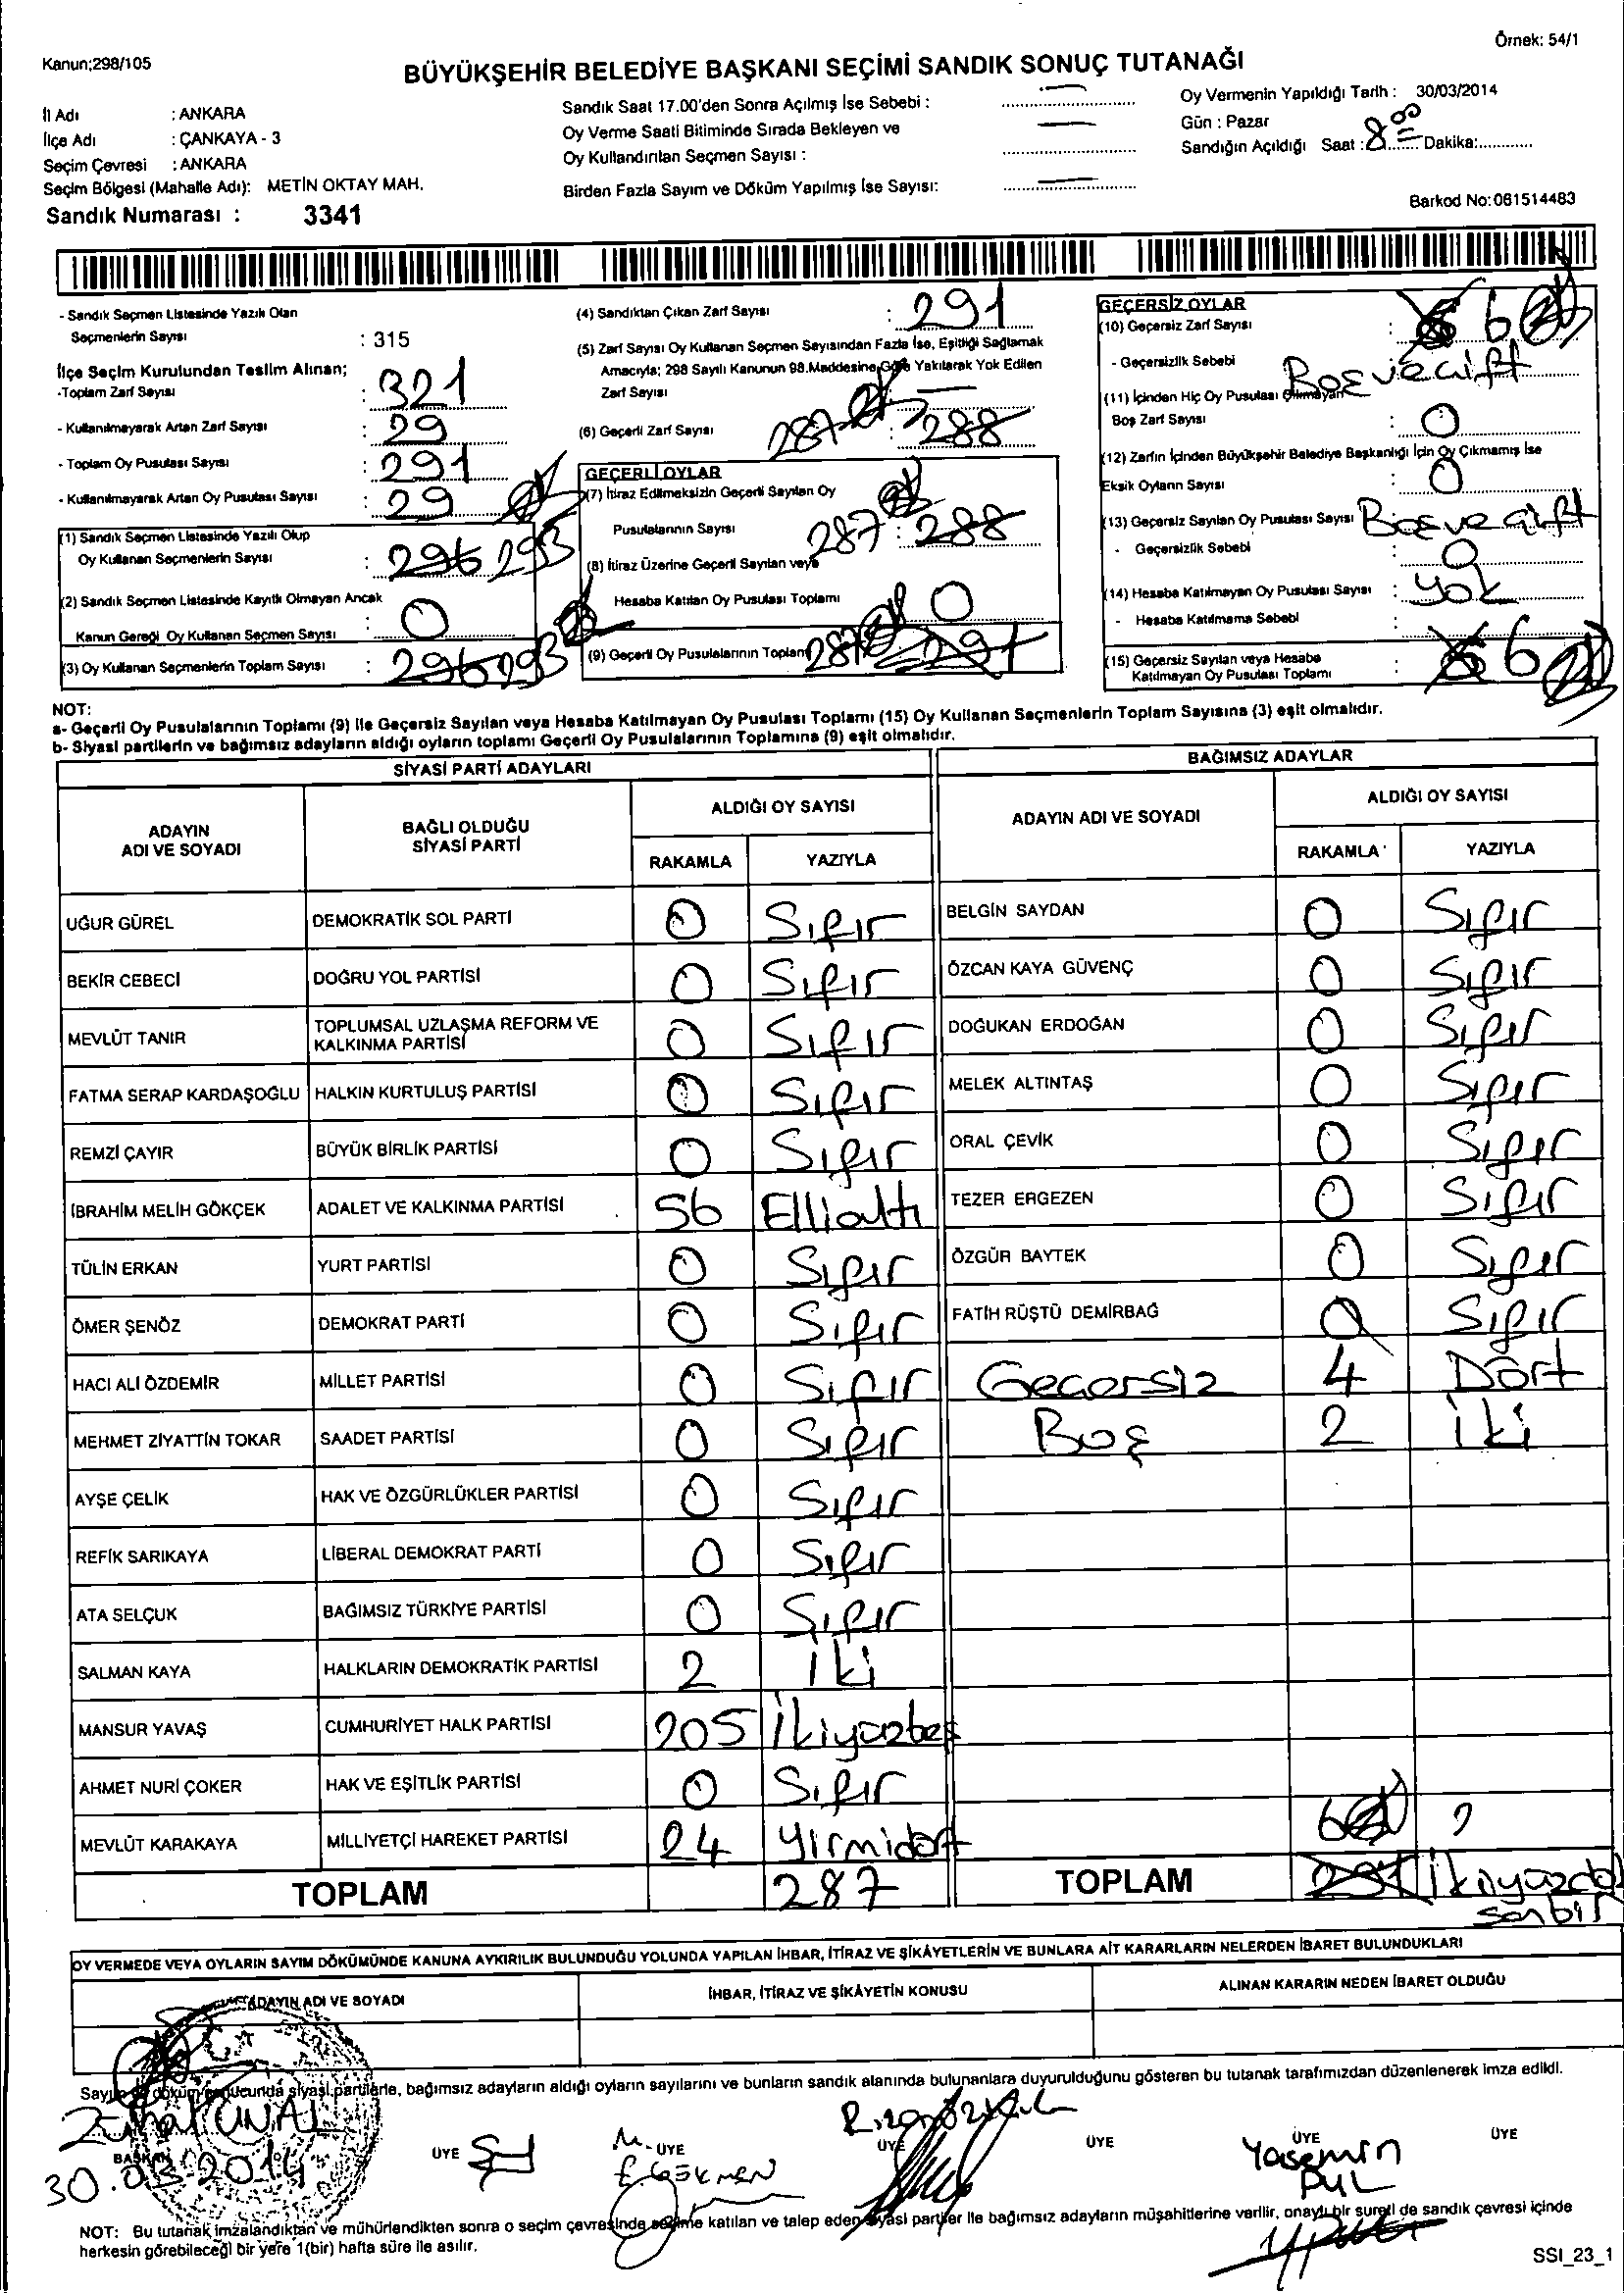 Kanun;298/105
Örnek: 54/1
BÜYÜKŞEHİR BELEDİYE BAŞKANI SEÇİMİ SANDIK SONUÇ TUTANAĞI
İl Adı : ANKARA
İlçe Adı : ÇANKAYA - 3
Seçim Çevresi : ANKARA
Seçim Bölgesi (Mahalle Adı): METİN OKTAY MAH.
Sandık Numarası : 3341
Sandık Saat 17.00'den Sonra Açılmış İse Sebebi :
Oy Verme Saati Bitiminde Sırada Bekleyen ve
Oy Kullandırılan Seçmen Sayısı :
Birden Fazla Sayım ve Döküm Yapılmış İse Sayısı:
Oy Vermenin Yapıldığı Tarih : 30/03/2014
Gün : Pazar
Sandığın Açıldığı Saat : 8 00 Dakika:
Barkod No:061514483
- Sandık Seçmen Listesinde Yazılı Olan
Seçmenlerin Sayısı : 315
İlçe Seçim Kurulundan Teslim Alınan;
-Toplam Zarf Sayısı : 321
- Kullanılmayarak Artan Zarf Sayısı : 29
- Toplam Oy Pusulası Sayısı : 291
- Kullanılmayarak Artan Oy Pusulası Sayısı : 29
(1) Sandık Seçmen Listesinde Yazılı Olup
Oy Kullanan Seçmenlerin Sayısı : 296 293
(2) Sandık Seçmen Listesinde Kayıtlı Olmayan Ancak
Kanun Gereği Oy Kullanan Seçmen Sayısı : 0
(3) Oy Kullanan Seçmenlerin Toplam Sayısı : 296 293
(4) Sandıktan Çıkan Zarf Sayısı : 291
(5) Zarf Sayısı Oy Kullanan Seçmen Sayısından Fazla İse, Eşitliği Sağlamak
Amacıyla; 298 Sayılı Kanunun 98.Maddesine Göre Yakılarak Yok Edilen
Zarf Sayısı :
(6) Geçerli Zarf Sayısı 287 : 288
GEÇERLİ OYLAR
(7) İtiraz Edilmeksizin Geçerli Sayılan Oy
Pusulalarının Sayısı 287 : 288
(8) İtiraz Üzerine Geçerli Sayılan veya
Hesaba Katılan Oy Pusulası Toplamı : 0
(9) Geçerli Oy Pusulalarının Toplamı 287 : 291
GEÇERSİZ OYLAR
(10) Geçersiz Zarf Sayısı : 6
- Geçersizlik Sebebi Boş ve çift
(11) İçinden Hiç Oy Pusulası Çıkmayan
Boş Zarf Sayısı : 0
(12) Zarfın İçinden Büyükşehir Belediye Başkanlığı İçin Oy Çıkmamış İse
Eksik Oyların Sayısı : 0
(13) Geçersiz Sayılan Oy Pusulası Sayısı Boş ve çift
- Geçersizlik Sebebi : 0
(14) Hesaba Katılmayan Oy Pusulası Sayısı : yok
- Hesaba Katılmama Sebebi :
(15) Geçersiz Sayılan veya Hesaba
Katılmayan Oy Pusulası Toplamı : 6
NOT:
a- Geçerli Oy Pusulalarının Toplamı (9) ile Geçersiz Sayılan veya Hesaba Katılmayan Oy Pusulası Toplamı (15) Oy Kullanan Seçmenlerin Toplam Sayısına (3) eşit olmalıdır.
b- Siyasi partilerin ve bağımsız adayların aldığı oyların toplamı Geçerli Oy Pusulalarının Toplamına (9) eşit olmalıdır.
SİYASİ PARTİ ADAYLARI
BAĞIMSIZ ADAYLAR
ADAYIN ADI VE SOYADI
BAĞLI OLDUĞU SİYASİ PARTİ
ALDIĞI OY SAYISI
RAKAMLA YAZIYLA
ADAYIN ADI VE SOYADI
ALDIĞI OY SAYISI
RAKAMLA YAZIYLA
UĞUR GÜREL DEMOKRATİK SOL PARTİ 0 Sıfır
BELGİN SAYDAN 0 Sıfır
BEKİR CEBECİ DOĞRU YOL PARTİSİ 0 Sıfır
ÖZCAN KAYA GÜVENÇ 0 Sıfır
MEVLÜT TANIR TOPLUMSAL UZLAŞMA REFORM VE KALKINMA PARTİSİ 0 Sıfır
DOĞUKAN ERDOĞAN 0 Sıfır
FATMA SERAP KARDAŞOĞLU HALKIN KURTULUŞ PARTİSİ 0 Sıfır
MELEK ALTINTAŞ 0 Sıfır
REMZİ ÇAYIR BÜYÜK BİRLİK PARTİSİ 0 Sıfır
ORAL ÇEVİK 0 Sıfır
İBRAHİM MELİH GÖKÇEK ADALET VE KALKINMA PARTİSİ 56 Ellialtı
TEZER ERGEZEN 0 Sıfır
TÜLİN ERKAN YURT PARTİSİ 0 Sıfır
ÖZGÜR BAYTEK 0 Sıfır
ÖMER ŞENÖZ DEMOKRAT PARTİ 0 Sıfır
FATİH RÜŞTÜ DEMİRBAĞ 0 Sıfır
HACI ALİ ÖZDEMİR MİLLET PARTİSİ 0 Sıfır
Geçersiz 4 Dört
MEHMET ZİYATTİN TOKAR SAADET PARTİSİ 0 Sıfır
Boş 2 iki
AYŞE ÇELİK HAK VE ÖZGÜRLÜKLER PARTİSİ 0 Sıfır
REFİK SARIKAYA LİBERAL DEMOKRAT PARTİ 0 Sıfır
ATA SELÇUK BAĞIMSIZ TÜRKİYE PARTİSİ 0 Sıfır
SALMAN KAYA HALKLARIN DEMOKRATİK PARTİSİ 2 iki
MANSUR YAVAŞ CUMHURİYET HALK PARTİSİ 205 İkiyüzbeş
AHMET NURİ ÇOKER HAK VE EŞİTLİK PARTİSİ 0 Sıfır
MEVLÜT KARAKAYA MİLLİYETÇİ HAREKET PARTİSİ 24 Yirmidört
6
TOPLAM 287
TOPLAM 291
OY VERMEDE VEYA OYLARIN SAYIM DÖKÜMÜNDE KANUNA AYKIRILIK BULUNDUĞU YOLUNDA YAPILAN İHBAR, İTİRAZ VE ŞİKÂYETLERİN VE BUNLARA AİT KARARLARIN NELERDEN İBARET BULUNDUKLARI
ADAYIN ADI VE SOYADI
İHBAR, İTİRAZ VE ŞİKÂYETİN KONUSU
ALINAN KARARIN NEDEN İBARET OLDUĞU
Sayım ve döküm sonucunda siyasi partilerle, bağımsız adayların aldığı oyların sayılarını ve bunların sandık alanında bulunanlara duyurulduğunu gösteren bu tutanak tarafımızdan düzenlenerek imza edildi.
ÜNAL
BAŞKAN
30.03.2014
ÜYE
ÜYE
M.
E. GÖKMEN
ÜYE
ÜYE
ÜYE
Yasemin
PUL
ÜYE
NOT: Bu tutanak imzalandıktan ve mühürlendikten sonra o seçim çevresinde seçime katılan ve talep eden siyasi partiler ile bağımsız adayların müşahitlerine verilir, onaylı bir sureti de sandık çevresi içinde
herkesin görebileceği bir yere 1(bir) hafta süre ile asılır.
SSI_23_1